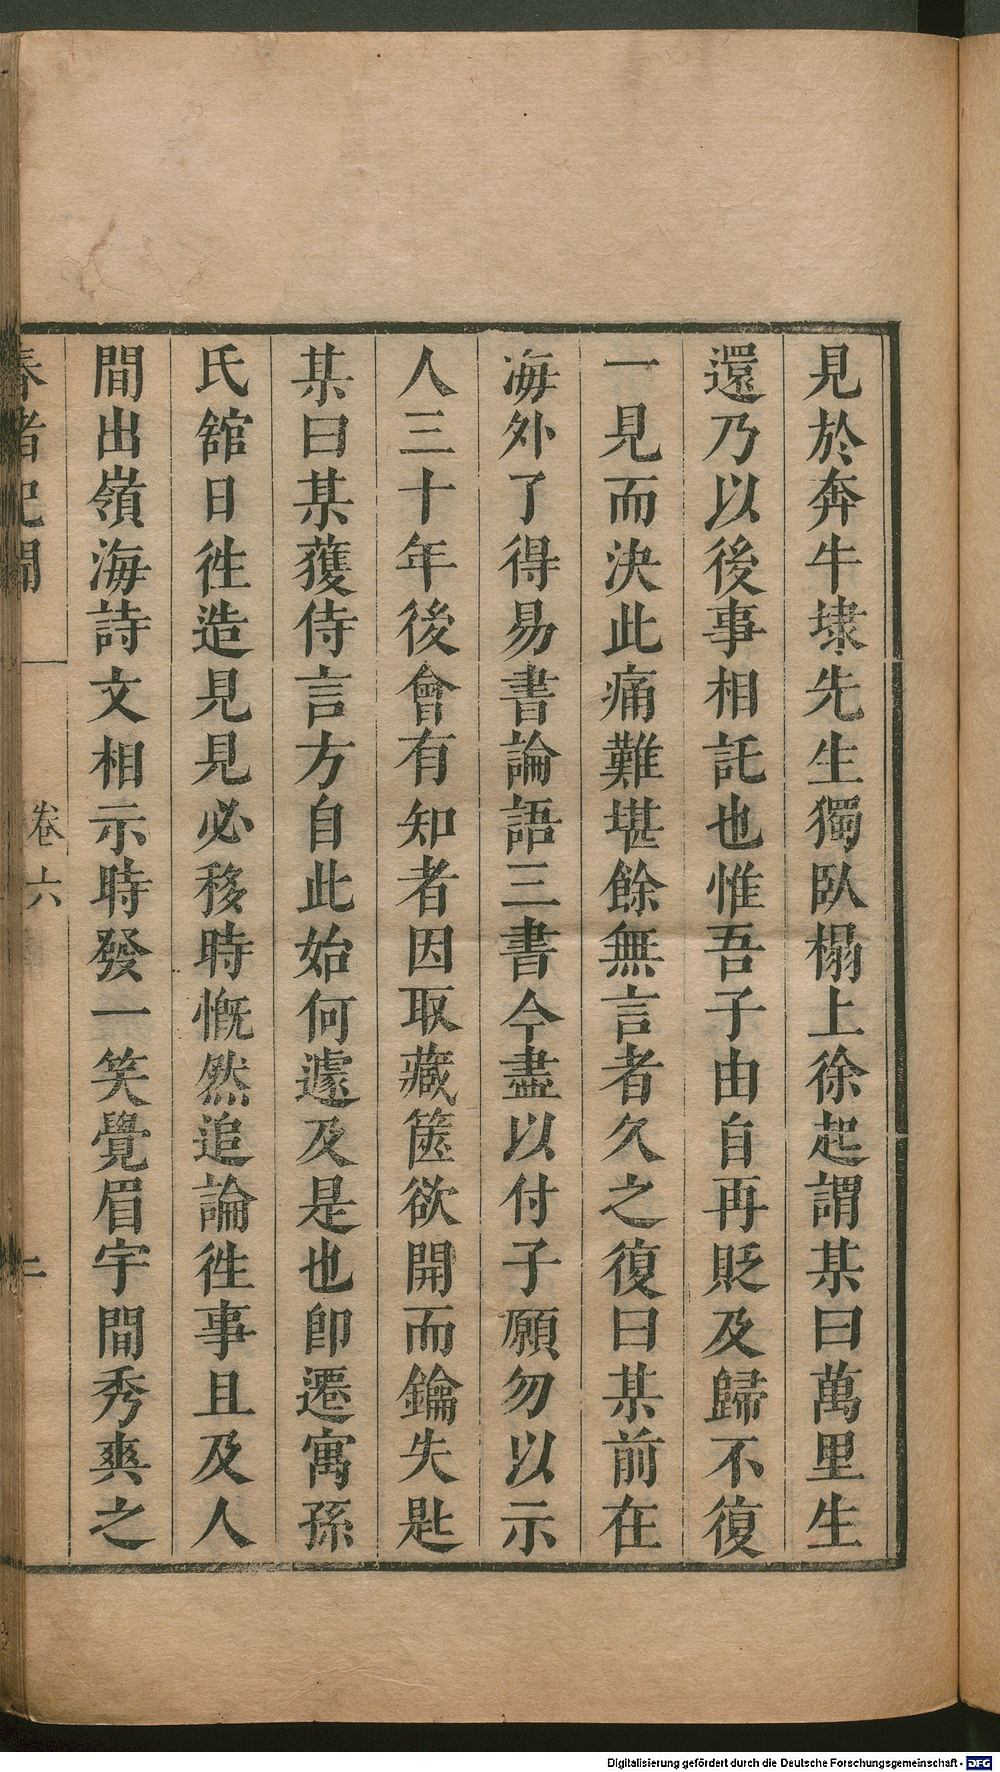 見於奔牛埭先生獨臥榻上徐起謂某曰萬里生
還乃以後事相託也惟吾子由自再貶及歸不復
一見而決此痛難堪餘無言者久之復曰某前在
海外了得易書論語三書今盡以付子願勿以示
人三十年後會有知者因取藏篋欲開而鑰失匙
某曰某獲侍言方自此始何遽及是也卽遷寓孫
氏舘日徃造見見必移時慨然追論徃事且及人
間出嶺海詩文相示時發一笑覺眉宇間秀爽之
春渚紀聞
卷六
二
Digitalisierung gefördert durch die Deutsche Forschungsgemeinschaft - DFG